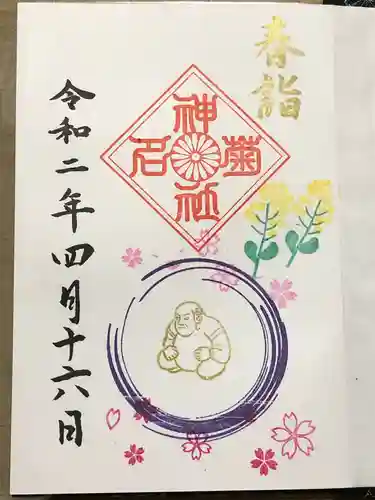 春詣
菊名
神社
令和二年四月十六日